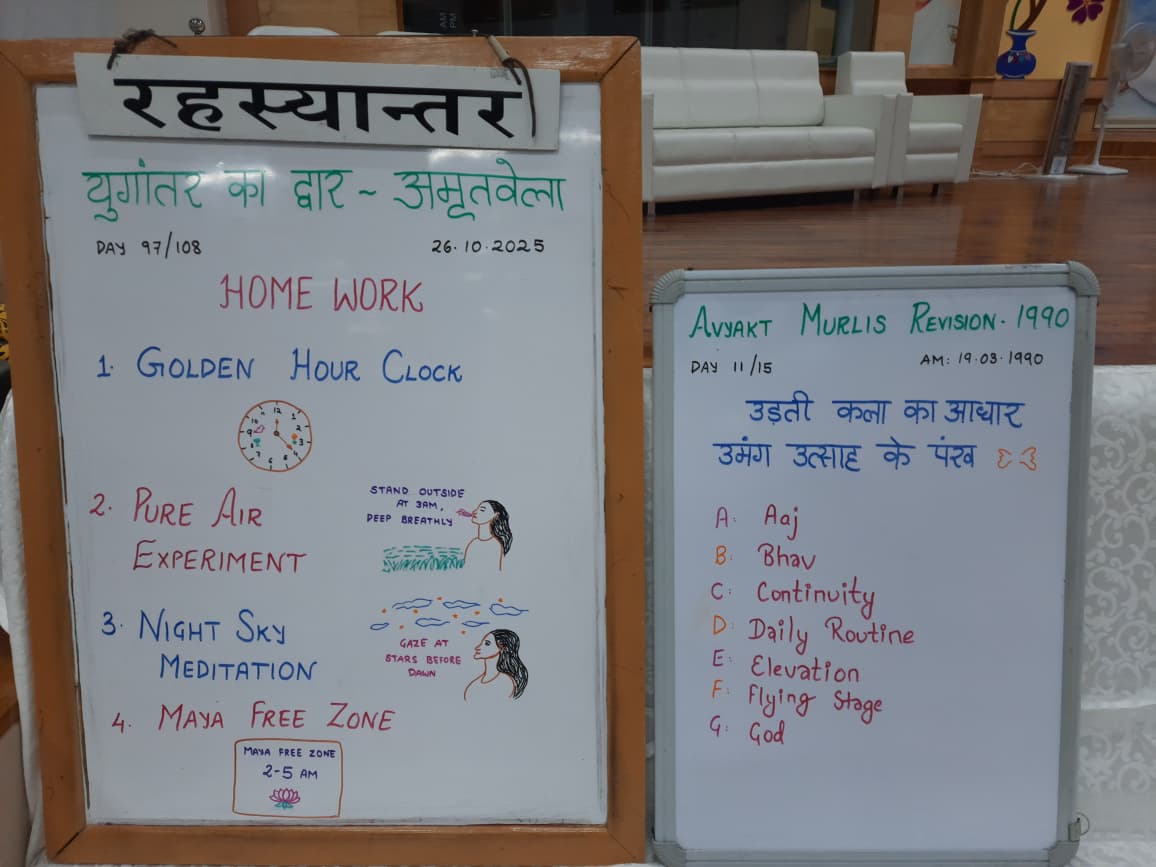 रहस्यान्तर
युगांतर का द्वार ~ अमृतवेला
DAY 97/108
26.10.2025
HOME WORK
1. GOLDEN HOUR CLOCK
2. PURE AIR
EXPERIMENT
STAND OUTSIDE
AT 3AM,
DEEP BREATHLY
3. NIGHT SKY
MEDITATION
GAZE AT
STARS BEFORE
DAWN
4. MAYA FREE ZONE
MAYA FREE ZONE
2-5 AM
AVYAKT MURLIS REVISION - 1990
DAY 11/15
AM: 19.03.1990
उड़ती कला का आधार
उमंग उत्साह के पंख
A: Aaj
B: Bhav
C: Continuity
D: Daily Routine
E: Elevation
F: Flying Stage
G: God
AM
PM